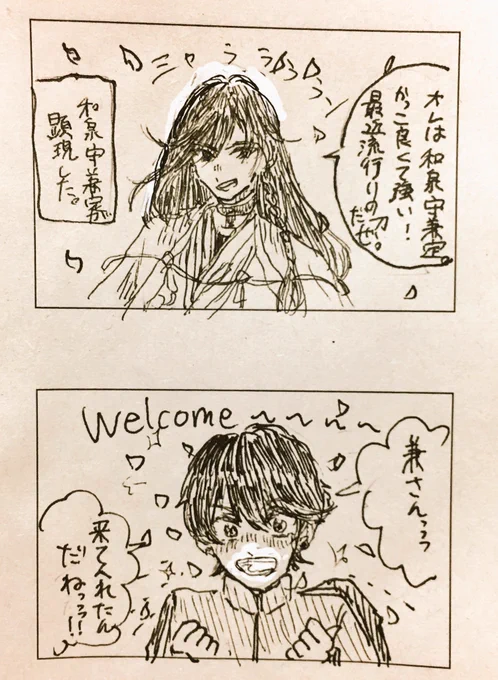 オレは和泉守兼定。
かっこ良くて強い！
最近流行りの刀
だぜ。
シャララララン
和泉守兼定が
顕現した。
Welcome～～～～
兼さんっっ
来てくれたん
だねっっ!!